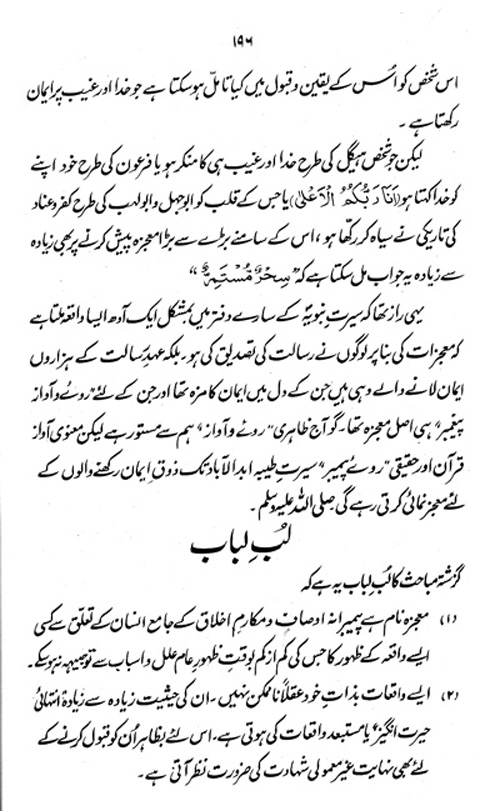 ۱۹۶
اس شخص کو اُس کے یقین و قبول میں کیا تامل ہو سکتا ہے جو خدا اور غیب پر ایمان
رکھتا ہے۔
لیکن جو شخص ہیگل کی طرح خدا اور غیب ہی کا منکر ہو یا فرعون کی طرح خود اپنے
کو خدا کہتا ہو (اَنَا رَبُّکُمُ الْاَعْلیٰ) یا جس کے قلب کو ابوجہل و ابولہب کی طرح کفر و عناد
کی تاریکی نے سیاہ کر رکھا ہو، اس کے سامنے بڑے سے بڑا معجزہ پیش کرنے پر بھی زیادہ
سے زیادہ یہ جواب مل سکتا ہے کہ "سِحْرٌ مُّسْتَمِرٌّ"
یہی راز تھا کہ سیرتِ نبویہؐ کے سارے دفتر میں بمشکل ایک آدھ ایسا واقعہ ملتا ہے
کہ معجزات کی بنا پر لوگوں نے رسالت کی تصدیق کی ہو۔ بلکہ عہدِ رسالت کے ہزاروں
ایمان لانے والے وہی ہیں جن کے دل میں ایمان کا مزہ تھا اور جن کے لئے "روئے و آواز
پیغمبر" ہی اصل معجزہ تھا۔ گو آج ظاہری "روئے و آواز" ہم سے مستور ہے لیکن معنوی آواز
قرآن اور حقیقی "روئے پیمبر" سیرتِ طیبہ ابدالآباد تک ذوقِ ایمان رکھنے والوں کے
لئے معجز نمائی کرتی رہے گی صلی اللہ علیہ وسلم۔
لُبِّ لباب
گزشتہ مباحث کا لُبِّ لباب یہ ہے کہ
(۱) معجزہ نام ہے پیمبرانہ اوصاف و مکارمِ اخلاق کے جامع انسان کے تعلق سے کسی
ایسے واقعہ کے ظہور کا جس کی کم از کم بوقتِ ظہور عام علل و اسباب سے توجیہہ نہ ہو سکے۔
(۲) ایسے واقعات بذاتِ خود عقلاً ناممکن نہیں۔ ان کی حیثیت زیادہ سے زیادہ انتہائی
حیرت انگیز یا مستبعد واقعات کی ہوتی ہے۔ اس لئے بظاہر اُن کو قبول کرنے کے
لئے بھی نہایت غیر معمولی شہادت کی ضرورت نظر آتی ہے۔